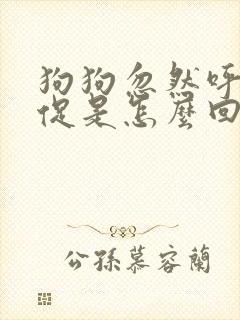 狗狗忽然呼
促是怎麼回
公孫慕容蘭